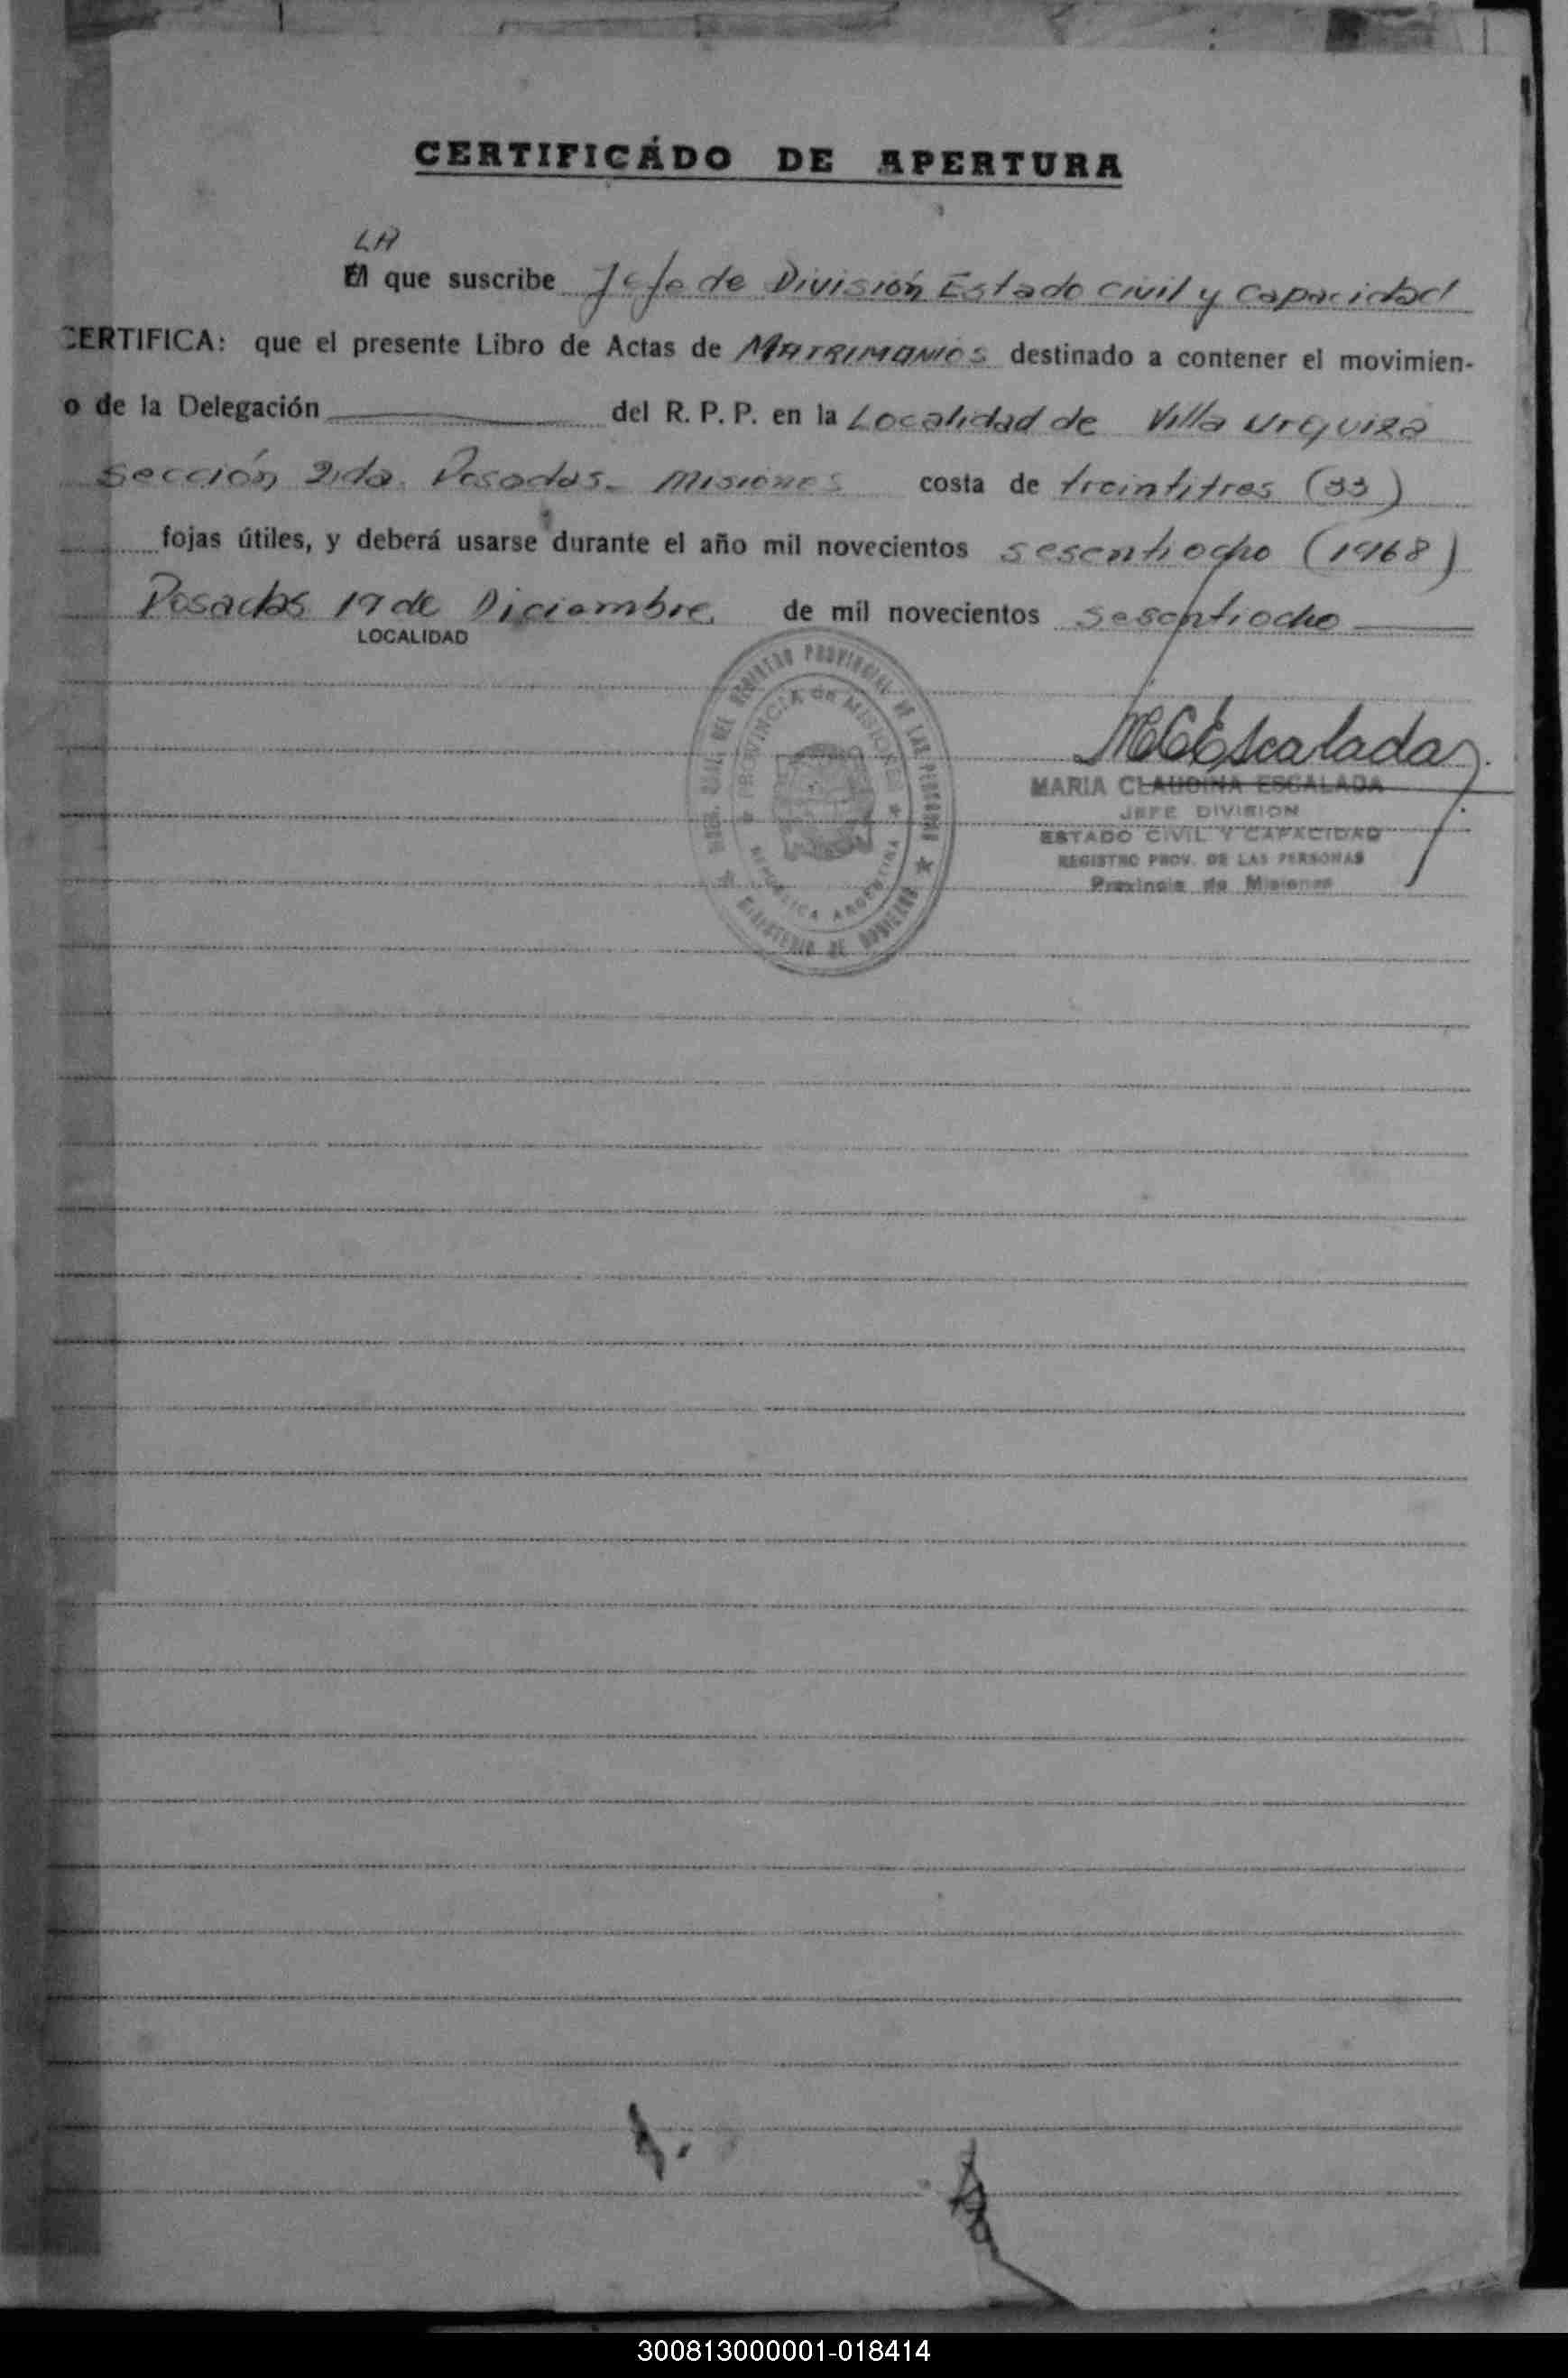 CERTIFICÁDO DE APERTURA
LA
El que suscribe Jefe de División Estado Civil y Capacidad
CERTIFICA: que el presente Libro de Actas de MATRIMONIOS destinado a contener el movimien-
o de la Delegación del R. P. P. en la Localidad de Villa Urquiza
Sección 2da. Posadas. Misiones costa de treintitres (33)
fojas útiles, y deberá usarse durante el año mil novecientos sesentiocho (1968)
Posadas 17 de Diciembre de mil novecientos sesentiocho
LOCALIDAD
DEL REGISTRO PROVINCIAL DE LAS PERSONAS
PROVINCIA de MISIONES
REPUBLICA ARGENTINA
MINISTERIO DE GOBIERNO
MCEscalada
MARIA CLAUDINA ESCALADA
JEFE DIVISION
ESTADO CIVIL Y CAPACIDAD
REGISTRO PROV. DE LAS PERSONAS
Provincia de Misiones
300813000001-018414